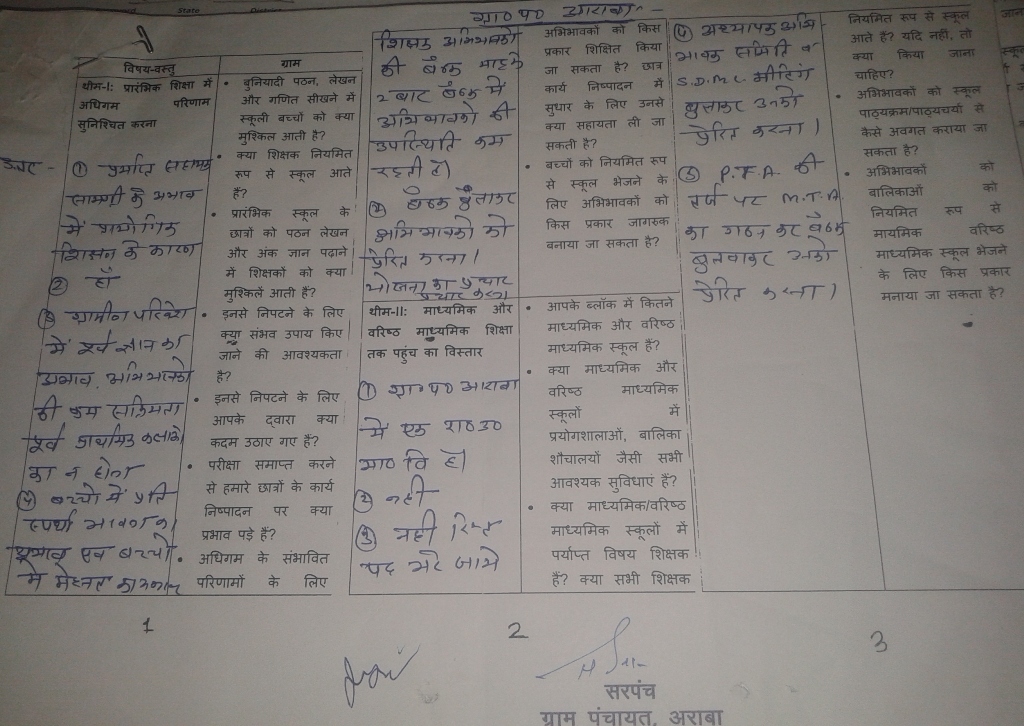 State
ग्रा० प० आराबा
विषय-वस्तु
ग्राम
थीम-I: प्रारंभिक शिक्षा में
अधिगम परिणाम
सुनिश्चित करना
① पर्याप्त सहायक
सामग्री के अभाव
में प्रायोगिक
शिक्षण के कारण
② हाँ
③ ग्रामीण परिवेश
में पूर्व ज्ञान का
अभाव, अभिभावको
की कम सक्रियता
पूर्व प्राथमिक कक्षाओं
का न होना
④ बच्चो में प्रति
स्पर्धा भावना का
अभाव एवं बच्चो
में मेहनत का अभाव
• बुनियादी पठन, लेखन
और गणित सीखने में
स्कूली बच्चों को क्या
मुश्किल आती है?
• क्या शिक्षक नियमित
रूप से स्कूल आते
हैं?
• प्रारंभिक स्कूल के
छात्रों को पठन लेखन
और अंक ज्ञान पढ़ाने
में शिक्षकों को क्या
मुश्किलें आती हैं?
• इनसे निपटने के लिए
क्या संभव उपाय किए
जाने की आवश्यकता
है?
• इनसे निपटने के लिए
आपके द्वारा क्या
कदम उठाए गए हैं?
• परीक्षा समाप्त करने
से हमारे छात्रों के कार्य
निष्पादन पर क्या
प्रभाव पड़े हैं?
• अधिगम के संभावित
परिणामों के लिए
1
शिक्षक अभिभावको
की बैठक माह मे
२ बार बैठक में
अभिभावको की
उपस्थिति कम
रहती है।
बैठक बुलाकर
अभिभावको को
प्रेरित करना।
योजना का प्रचार
प्रसार करना
थीम-II: माध्यमिक और
वरिष्ठ माध्यमिक शिक्षा
तक पहुंच का विस्तार
① ग्रा० प० आराबा
में एक रा० उ०
मा० वि है।
② नही
③ नही रिक्त
पद भरे जाये
अभिभावकों को किस
प्रकार शिक्षित किया
जा सकता है? छात्र
कार्य निष्पादन में
सुधार के लिए उनसे
क्या सहायता ली जा
सकती है?
• बच्चों को नियमित रूप
से स्कूल भेजने के
लिए अभिभावकों को
किस प्रकार जागरुक
बनाया जा सकता है?
• आपके ब्लॉक में कितने
माध्यमिक और वरिष्ठ
माध्यमिक स्कूल हैं?
• क्या माध्यमिक और
वरिष्ठ माध्यमिक
स्कूलों में
प्रयोगशालाओं, बालिका
शौचालयों जैसी सभी
आवश्यक सुविधाएं हैं?
• क्या माध्यमिक/वरिष्ठ
माध्यमिक स्कूलों में
पर्याप्त विषय शिक्षक
हैं? क्या सभी शिक्षक
2
④ अध्यापक अभि
भावक समिति व
S.D.M.C मीटिंग
बुलाकर उनको
प्रेरित करना।
⑤ P.T.A. की
तर्ज पर M.T.A.
का गठन कर बैठक
बुलवाकर उनको
प्रेरित करना।
नियमित रूप से स्कूल
आते हैं? यदि नहीं, तो
क्या किया जाना
चाहिए?
• अभिभावकों को स्कूल
पाठ्यक्रम/पाठ्यचर्या से
कैसे अवगत कराया जा
सकता है?
• अभिभावकों को
बालिकाओं को
नियमित रूप से
मायमिक वरिष्ठ
माध्यमिक स्कूल भेजने
के लिए किस प्रकार
मनाया जा सकता है?
3
सरपंच
ग्राम पंचायत, अराबा